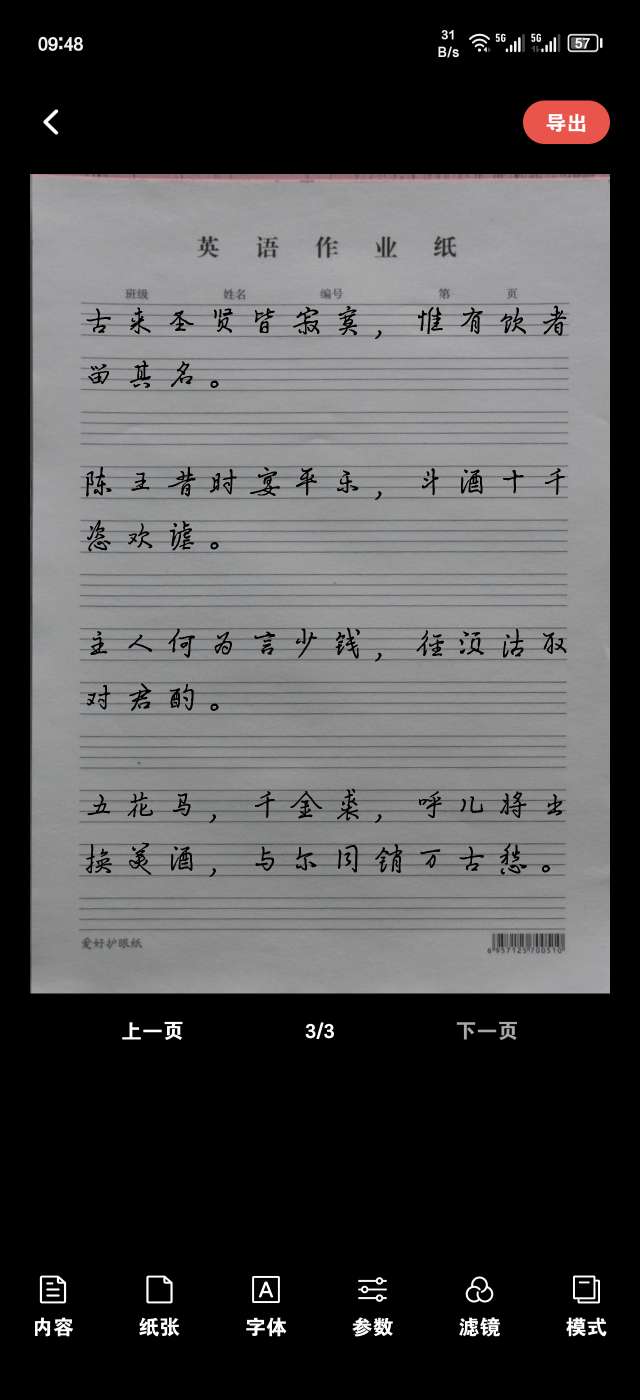 09:48
31 B/s 5G 5G 57
导出
英语作业纸
班级 姓名 编号 第 页
古来圣贤皆寂寞，惟有饮者
留其名。
陈王昔时宴平乐，斗酒十千
恣欢谑。
主人何为言少钱，径须沽取
对君酌。
五花马，千金裘，呼儿将出
换美酒，与尔同销万古愁。
爱好护眼纸
6957125700510
上一页 3/3 下一页
内容 纸张 字体 参数 滤镜 模式